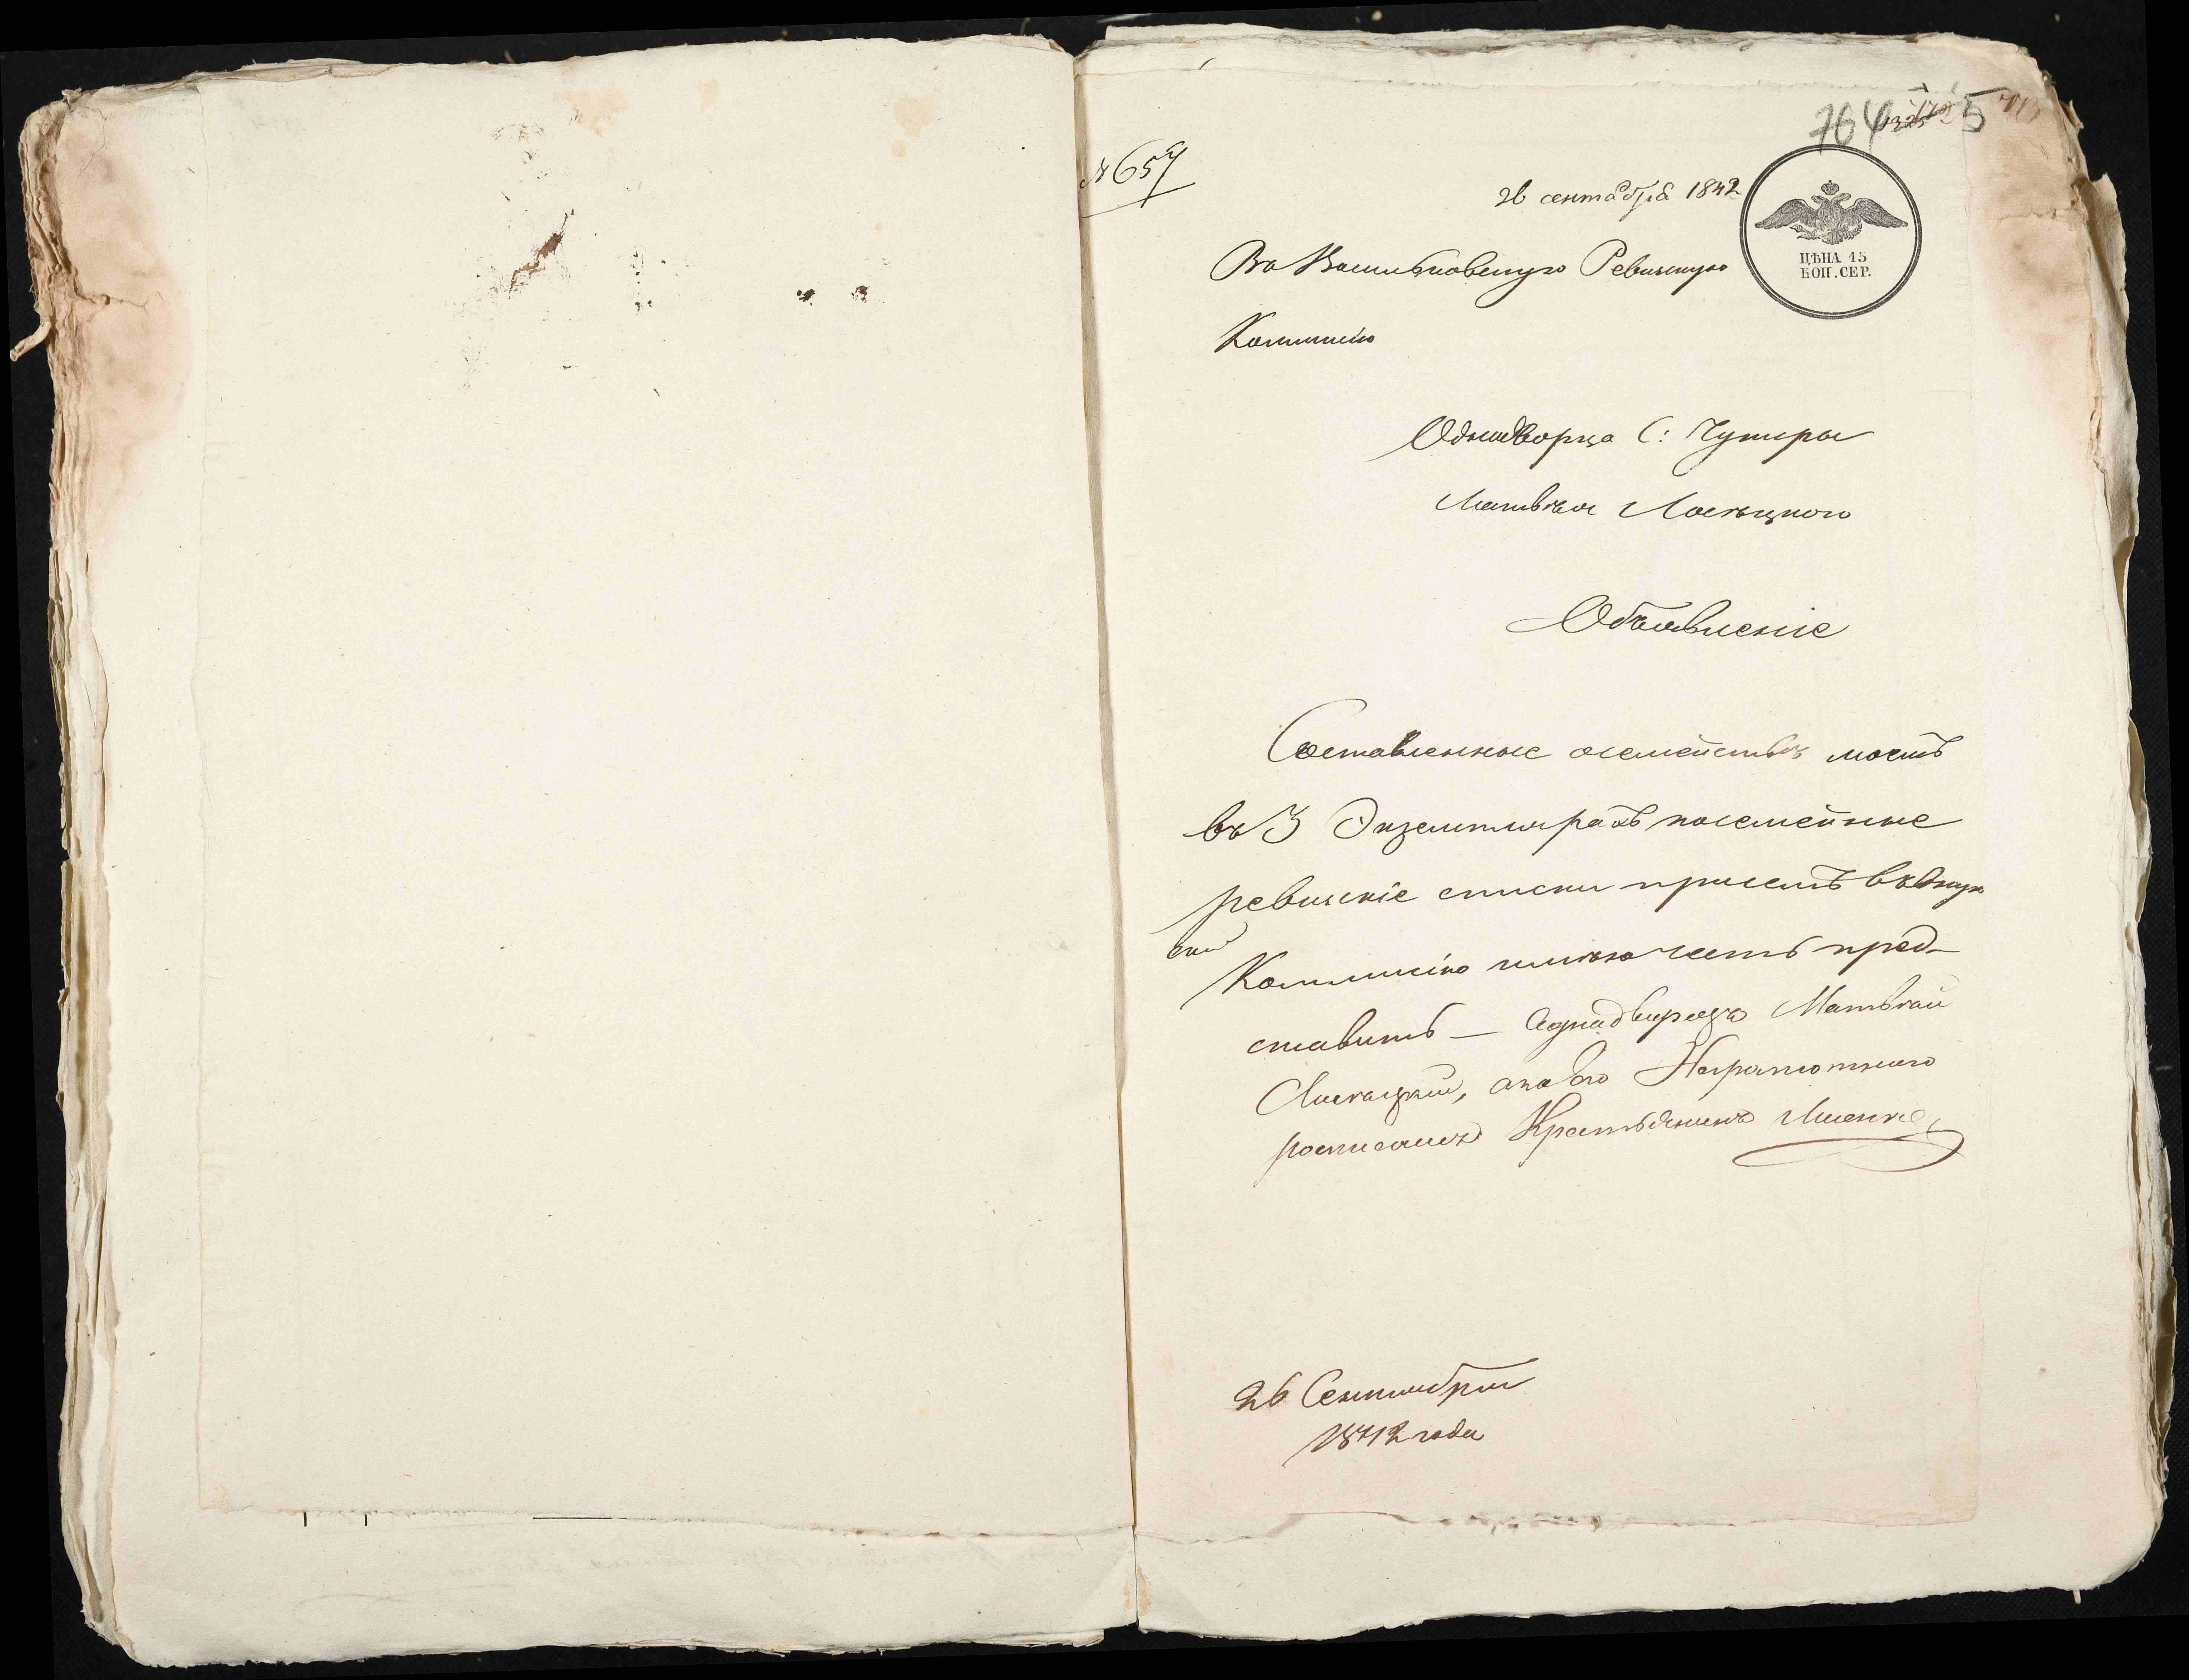 764 5
№ 657
26 сентября 1842
ЦѢНА 15
КОП. СЕР.
Въ Васильковскую Ревизскую
Коммисію
Однодворца С:
Матвѣя
Объявленіе
Составленные о семействѣ моемъ
въ 3 Экземплярахъ посемейные
ревизскіе списки при семъ въ
Коммисію имѣю честь пред-
ставить — Аднадворецъ Матвѣй
а за его Неграмотнаго
росписался Крестьянинъ
26 Сентября
1842 года